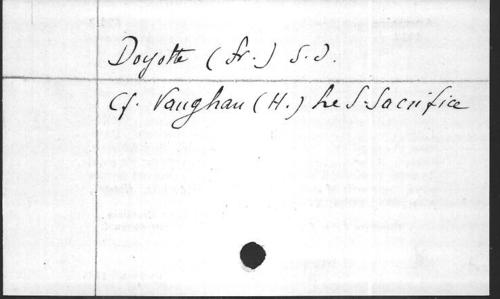 Doyotte (Fr.) S.J.
Cf. Vaughan (H.) Le S. Sacrifice